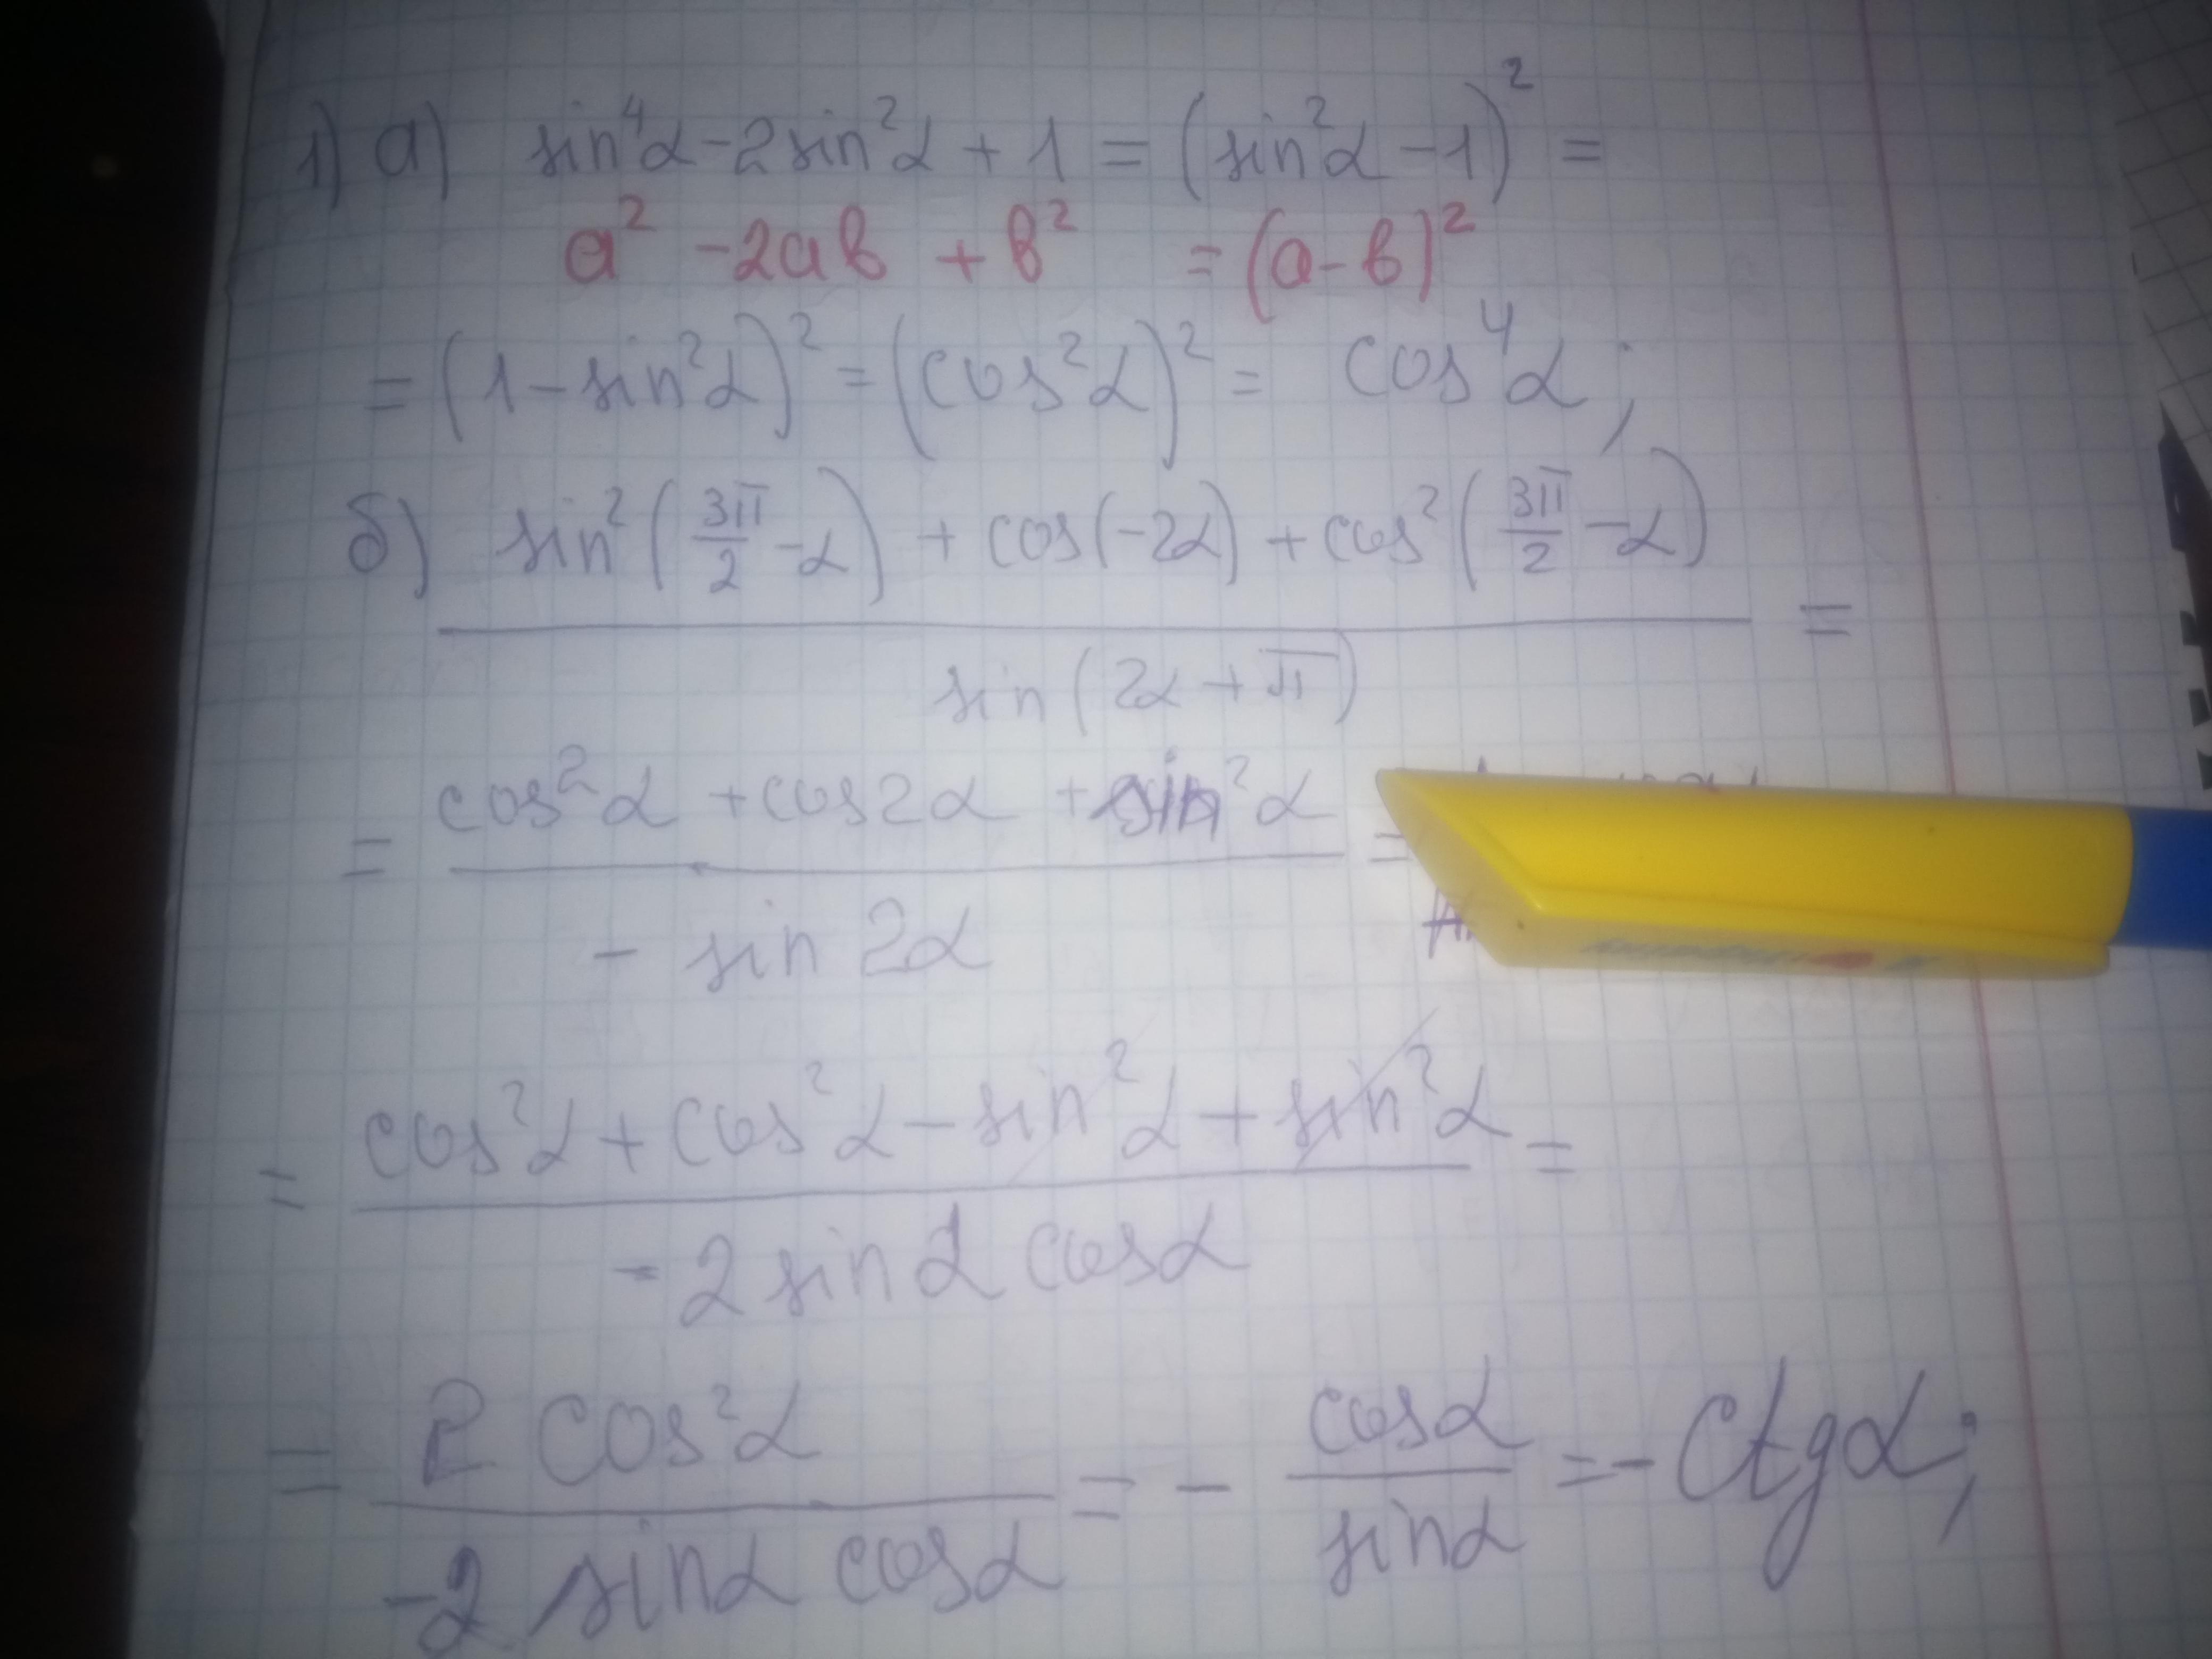 1) а) sin⁴α - 2sin²α + 1 = (sin²α - 1)² =
a² - 2ab + b² = (a - b)²
= (1 - sin²α)² = (cos²α)² = cos⁴α;
б) sin²(3π/2 - α) + cos(-2α) + cos²(3π/2 - α)
sin(2α + π) =
= cos²α + cos2α + sin²α =
- sin 2α
= cos²α + cos²α - sin²α + sin²α =
- 2 sin α cos α
= 2 cos²α / -2 sinα cosα = - cosα / sinα = - ctgα;